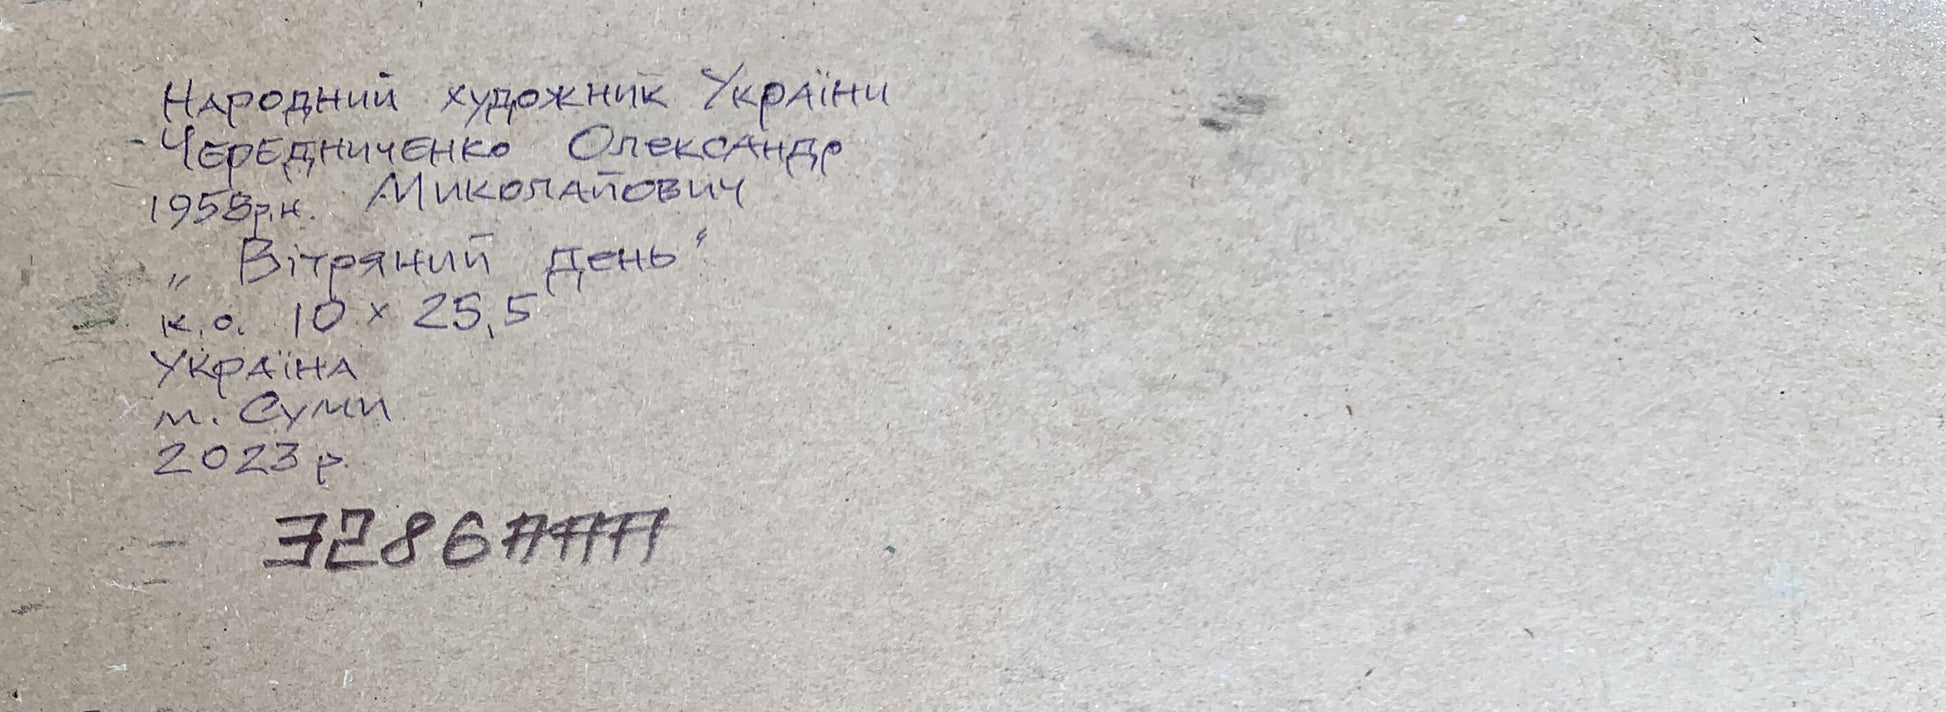 Народний художник України
Чередниченко Олександр
1958р.н. Миколайович
„ Вітряний день“
к.о. 10 × 25,5
Україна
м. Суми
2023 р.
3286ААА